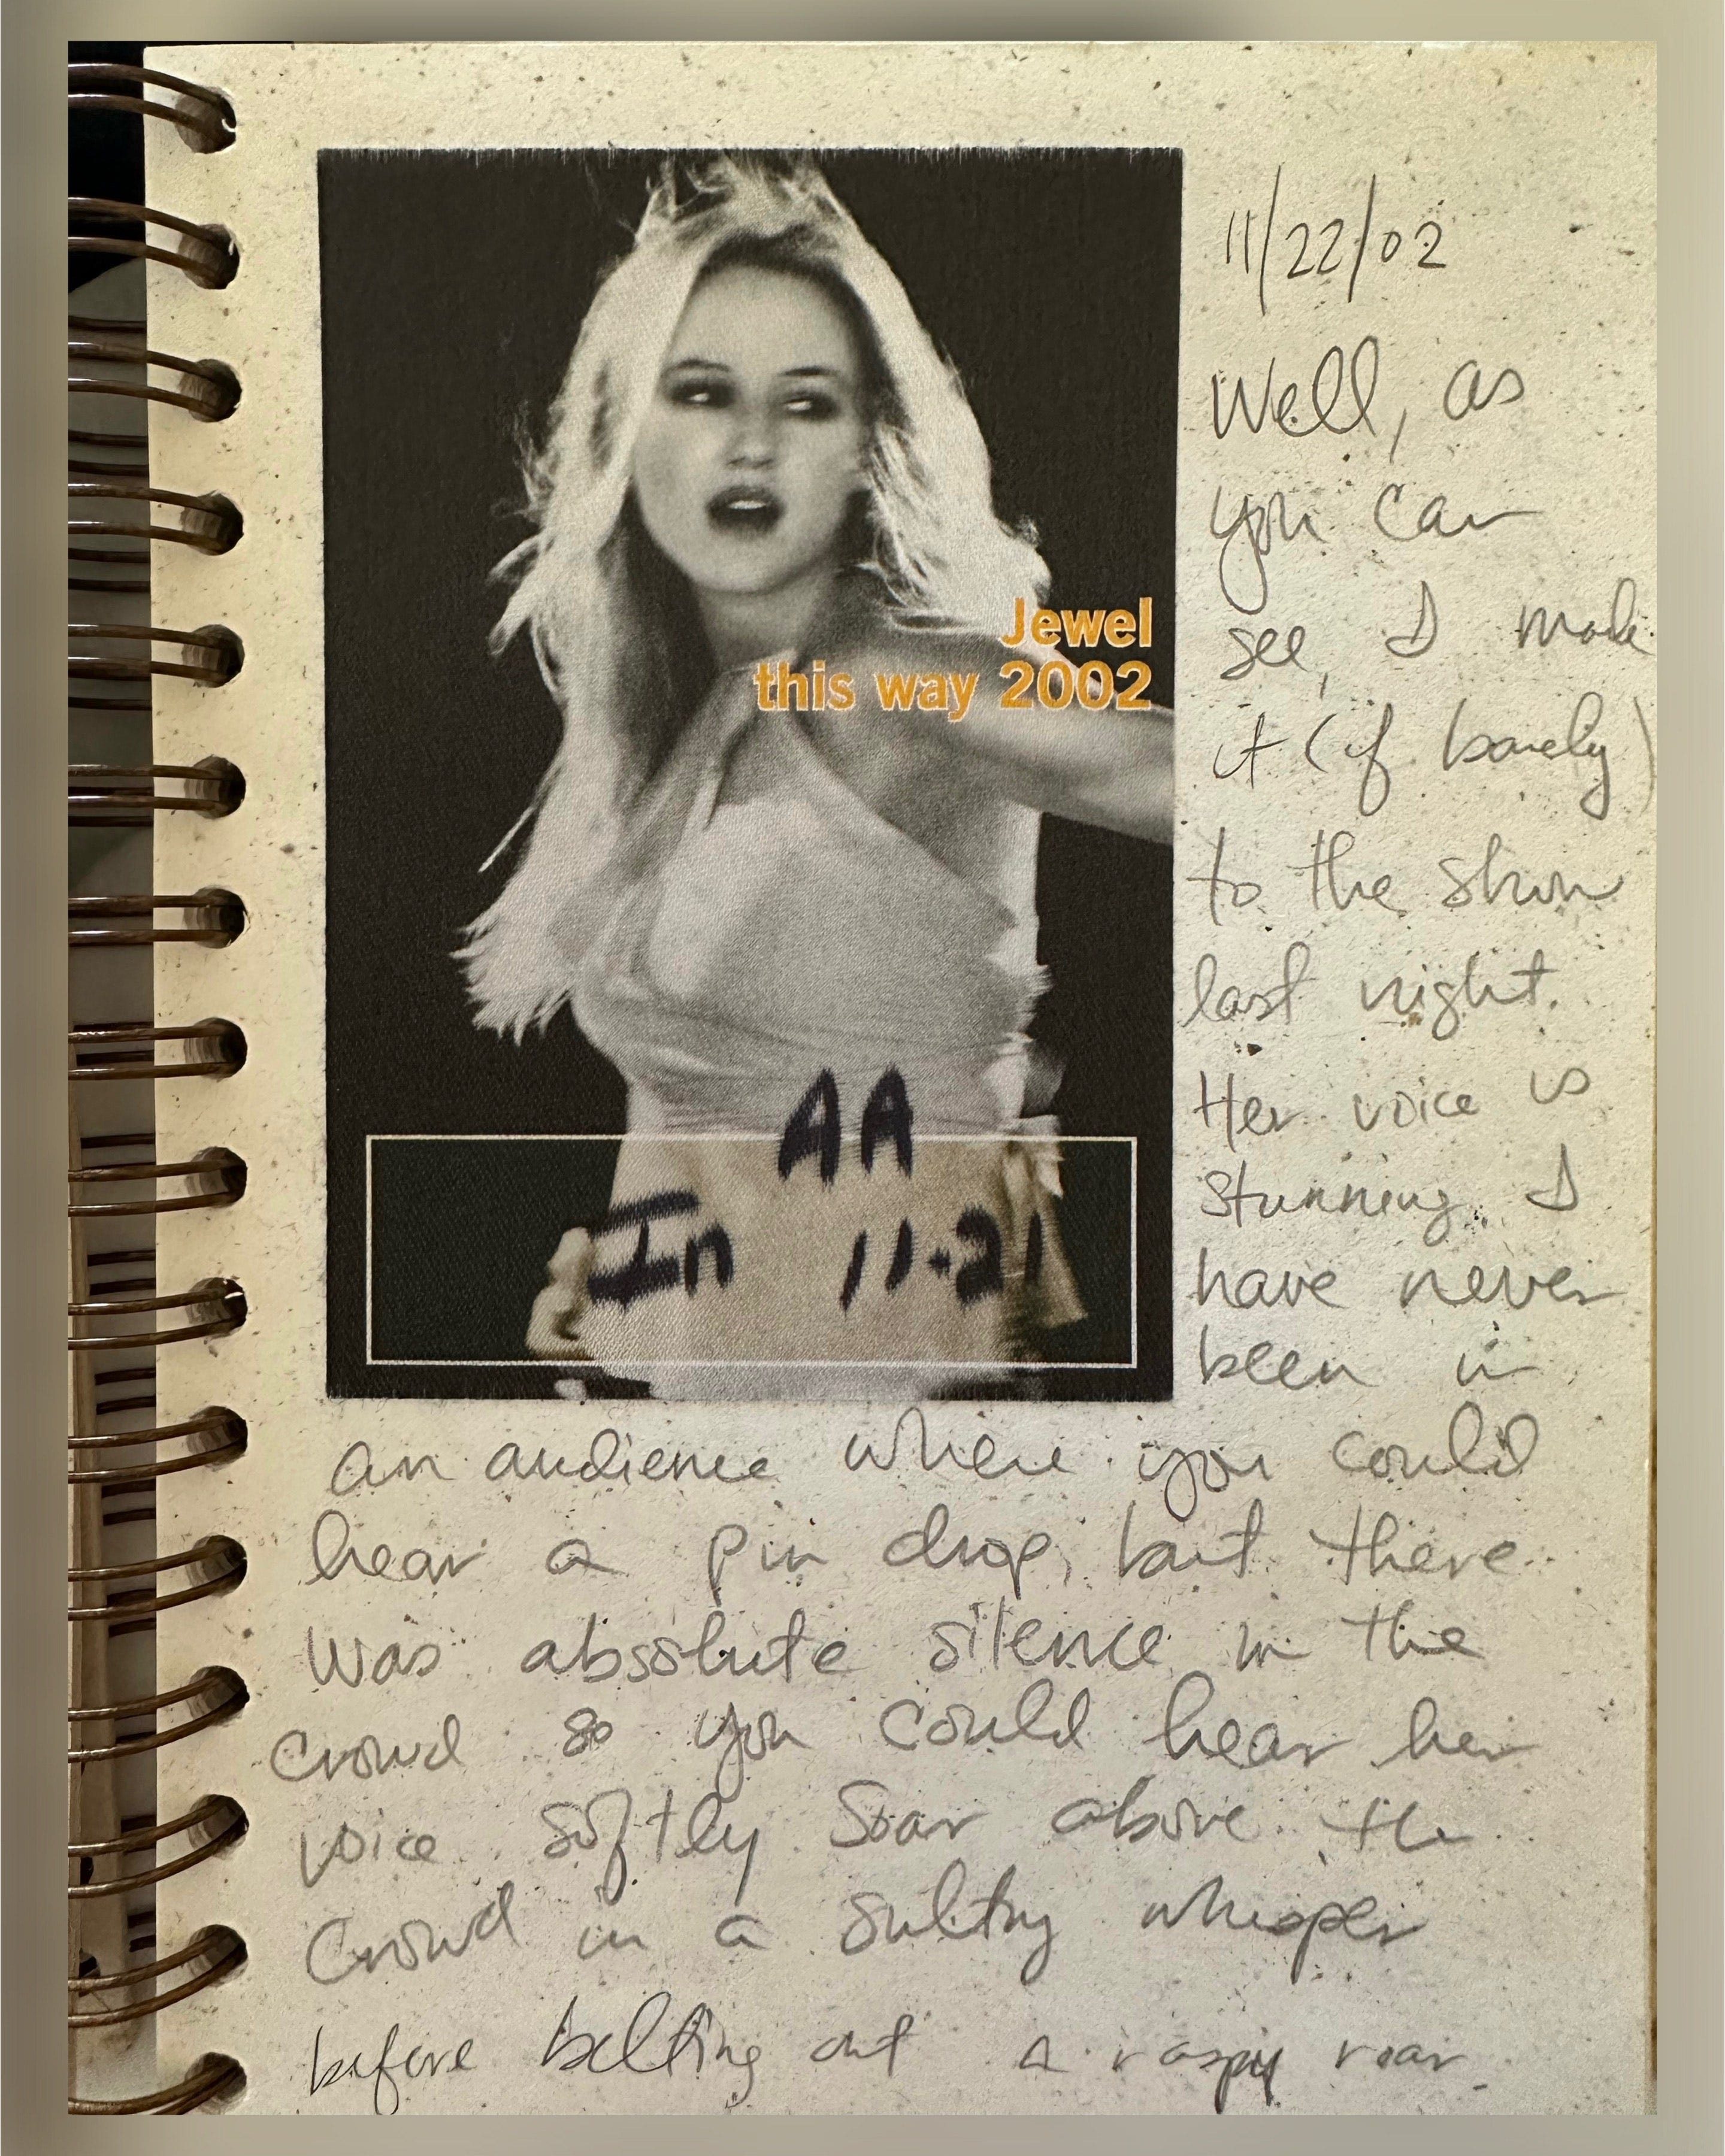 Jewel
this way 2002
AA
In 11-21
11/22/02
Well, as
you can
see, I made
it (if barely)
to the show
last night.
Her voice is
stunning. I
have never
been in
an audience where you could
hear a pin drop, but there
was absolute silence in the
crowd so you could hear her
voice softly soar above the
crowd in a sultry whisper
before belting out a raspy roar